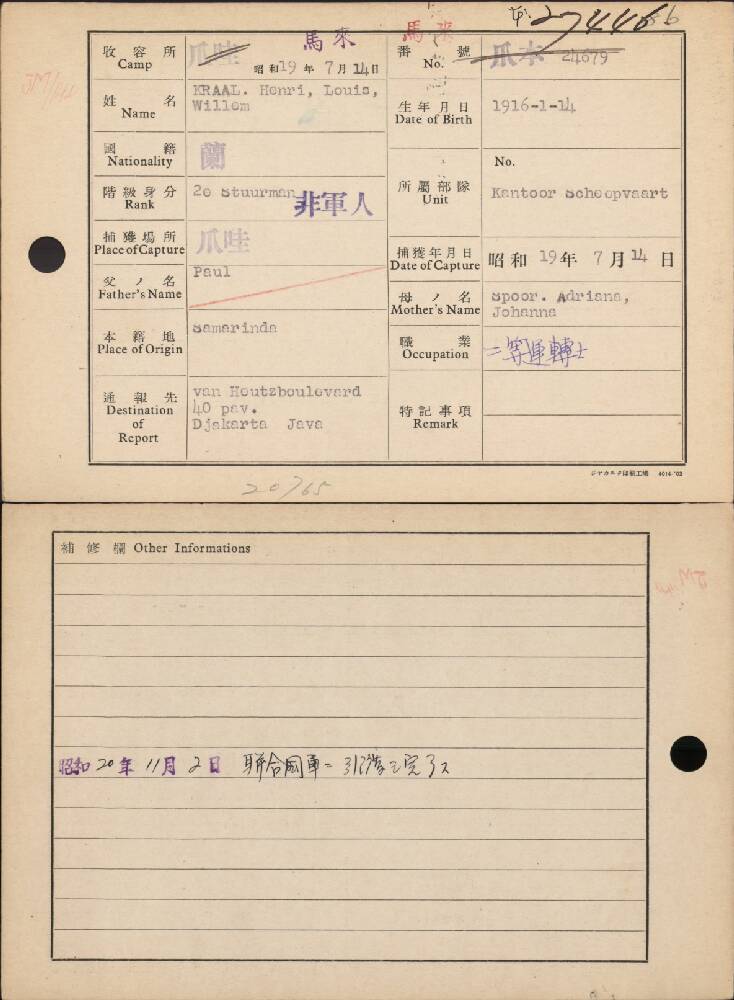 馬來
馬來
收容所
Camp
爪哇
昭和19年7月14日
番號
No.
爪本 24679
姓名
Name
KRAAL. Henri, Louis,
Willem
生年月日
Date of Birth
1916-1-14
國籍
Nationality
蘭
階級身分
Rank
2e Stuurman
非軍人
所屬部隊
Unit
No.
Kantoor Scheepvaart
捕獲場所
Place of Capture
爪哇
捕獲年月日
Date of Capture
昭和19年7月14日
父ノ名
Father's Name
Paul
母ノ名
Mother's Name
Spoor. Adriana,
Johanna
本籍地
Place of Origin
Samarinda
職業
Occupation
二等運轉士
通報先
Destination
of
Report
van Heutzboulevard
40 pav.
Djakarta Java
特記事項
Remark
ジヤカルタ印刷工場 4014-'03
20765
補修欄 Other Informations
昭和20年11月2日 聯合國軍ニ引渡ヲ完了ス